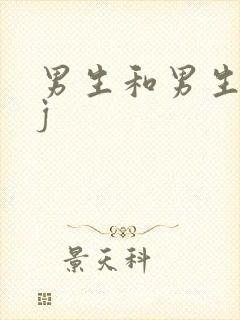 男生和男生
j
景天科